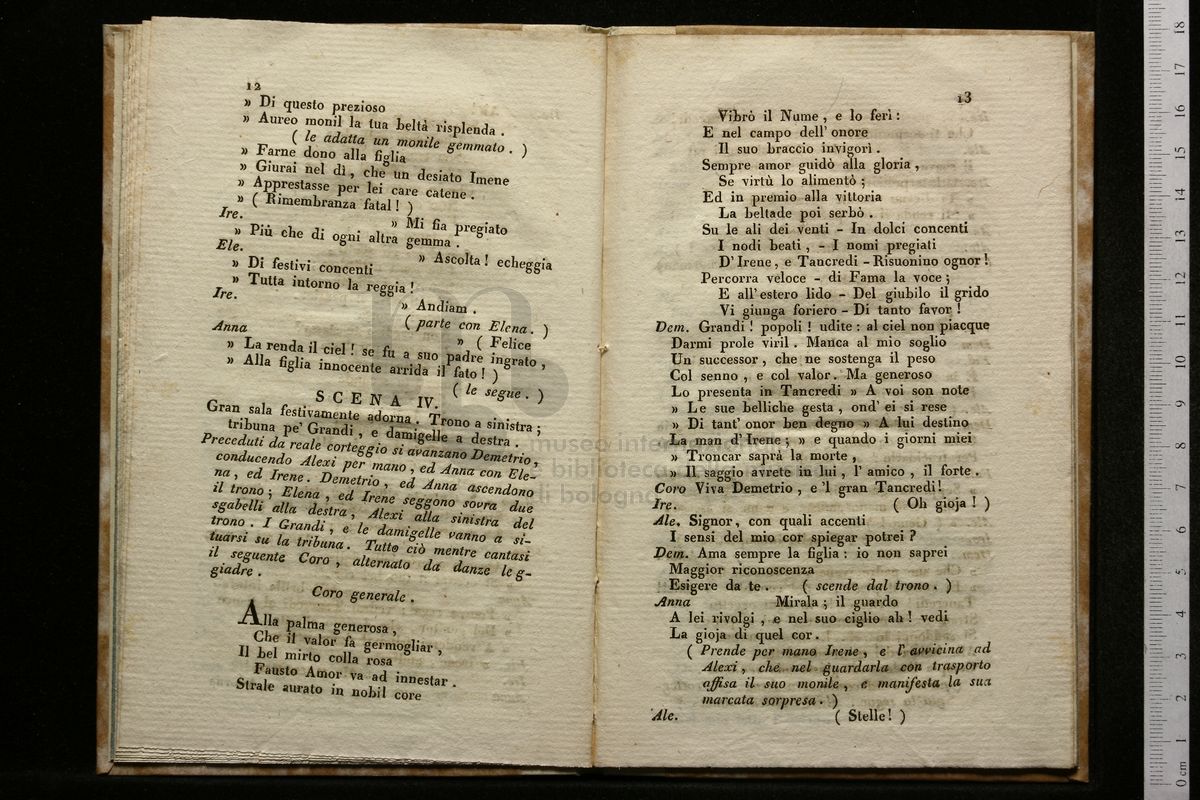 12
» Di questo prezioso
» Aureo monil la tua beltà risplenda .
( le adatta un monile gemmato . )
» Farne dono alla figlia
» Giurai nel dì , che un desiato Imene
» Apprestasse per lei care catene .
» ( Rimembranza fatal ! )
Ire. » Mi fia pregiato
» Più che di ogni altra gemma .
Ele. » Ascolta ! echeggia
» Di festivi concenti
» Tutta intorno la reggia !
Ire. » Andiam .
( parte con Elena . )
Anna » ( Felice
» La renda il ciel ! se fu a suo padre ingrato ,
» Alla figlia innocente arrida il fato ! )
( le segue . )
SCENA IV.
Gran sala festivamente adorna . Trono a sinistra ;
tribuna pe' Grandi , e damigelle a destra .
Preceduti da reale corteggio si avanzano Demetrio ,
conducendo Alexi per mano , ed Anna con Ele-
na , ed Irene . Demetrio , ed Anna ascendono
il trono ; Elena , ed Irene seggono sovra due
sgabelli alla destra , Alexi alla sinistra del
trono . I Grandi , e le damigelle vanno a si-
tuarsi su la tribuna . Tutto ciò mentre cantasi
il seguente Coro , alternato da danze leg-
giadre .
Coro generale .
Alla palma generosa ,
Che il valor fa germogliar ,
Il bel mirto colla rosa
Fausto Amor va ad innestar .
Strale aurato in nobil core
13
Vibrò il Nume , e lo ferì :
E nel campo dell' onore
Il suo braccio invigorì .
Sempre amor guidò alla gloria ,
Se virtù lo alimentò ;
Ed in premio alla vittoria
La beltade poi serbò .
Su le ali dei venti - In dolci concenti
I nodi beati , - I nomi pregiati
D' Irene , e Tancredi - Risuonino ognor !
Percorra veloce - di Fama la voce ;
E all' estero lido - Del giubilo il grido
Vi giunga foriero - Di tanto favor !
Dem. Grandi ! popoli ! udite : al ciel non piacque
Darmi prole viril . Manca al mio soglio
Un successor , che ne sostenga il peso
Col senno , e col valor . Ma generoso
Lo presenta in Tancredi » A voi son note
» Le sue belliche gesta , ond' ei si rese
» Di tant' onor ben degno » A lui destino
La man d' Irene ; » e quando i giorni miei
» Troncar saprà la morte ,
» Il saggio avrete in lui , l' amico , il forte .
Coro Viva Demetrio , e 'l gran Tancredi !
Ire. ( Oh gioja ! )
Ale. Signor , con quali accenti
I sensi del mio cor spiegar potrei ?
Dem. Ama sempre la figlia : io non saprei
Maggior riconoscenza
Esigere da te . ( scende dal trono . )
Anna Mirala ; il guardo
A lei rivolgi , e nel suo ciglio ah ! vedi
La gioja di quel cor .
( Prende per mano Irene , e l' avvicina ad
Alexi , che nel guardarla con trasporto
affisa il suo monile , e manifesta la sua
marcata sorpresa . )
Ale. ( Stelle ! )
museo
e biblioteca
di bologna
0 cm 1 2 3 4 5 6 7 8 9 10 11 12 13 14 15 16 17 18